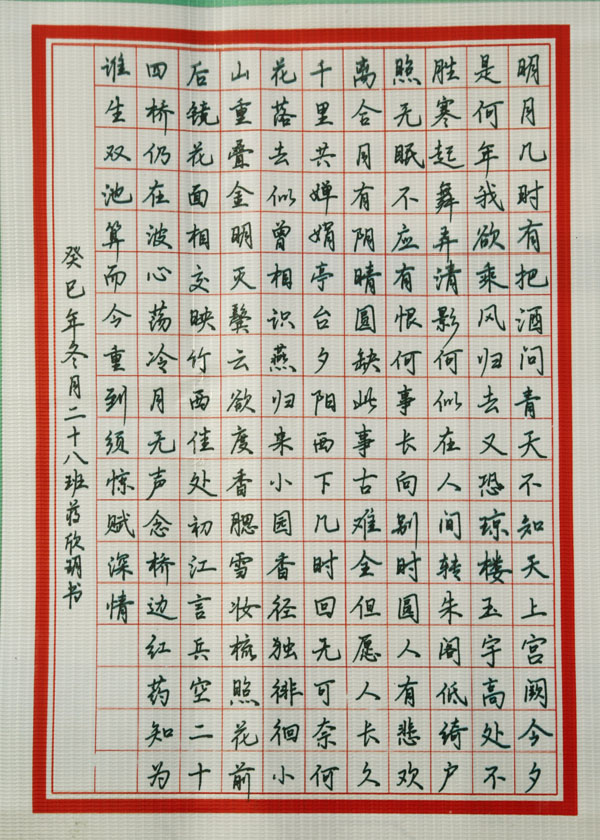 明月几时有把酒问青天不知天上宫阙今夕
是何年我欲乘风归去又恐琼楼玉宇高处不
胜寒起舞弄清影何似在人间转朱阁低绮户
照无眠不应有恨何事长向别时圆人有悲欢
离合月有阴晴圆缺此事古难全但愿人长久
千里共婵娟亭台夕阳西下几时回无可奈何
花落去似曾相识燕归来小园香径独徘徊小
山重叠金明灭鬓云欲度香腮雪妆梳照花前
后镜花面相交映竹西佳处初江言兵空二十
四桥仍在波心荡冷月无声念桥边红药知为
谁生双池算而今重到须惊赋深情
癸巳年冬月二十八班蒋欣玥书